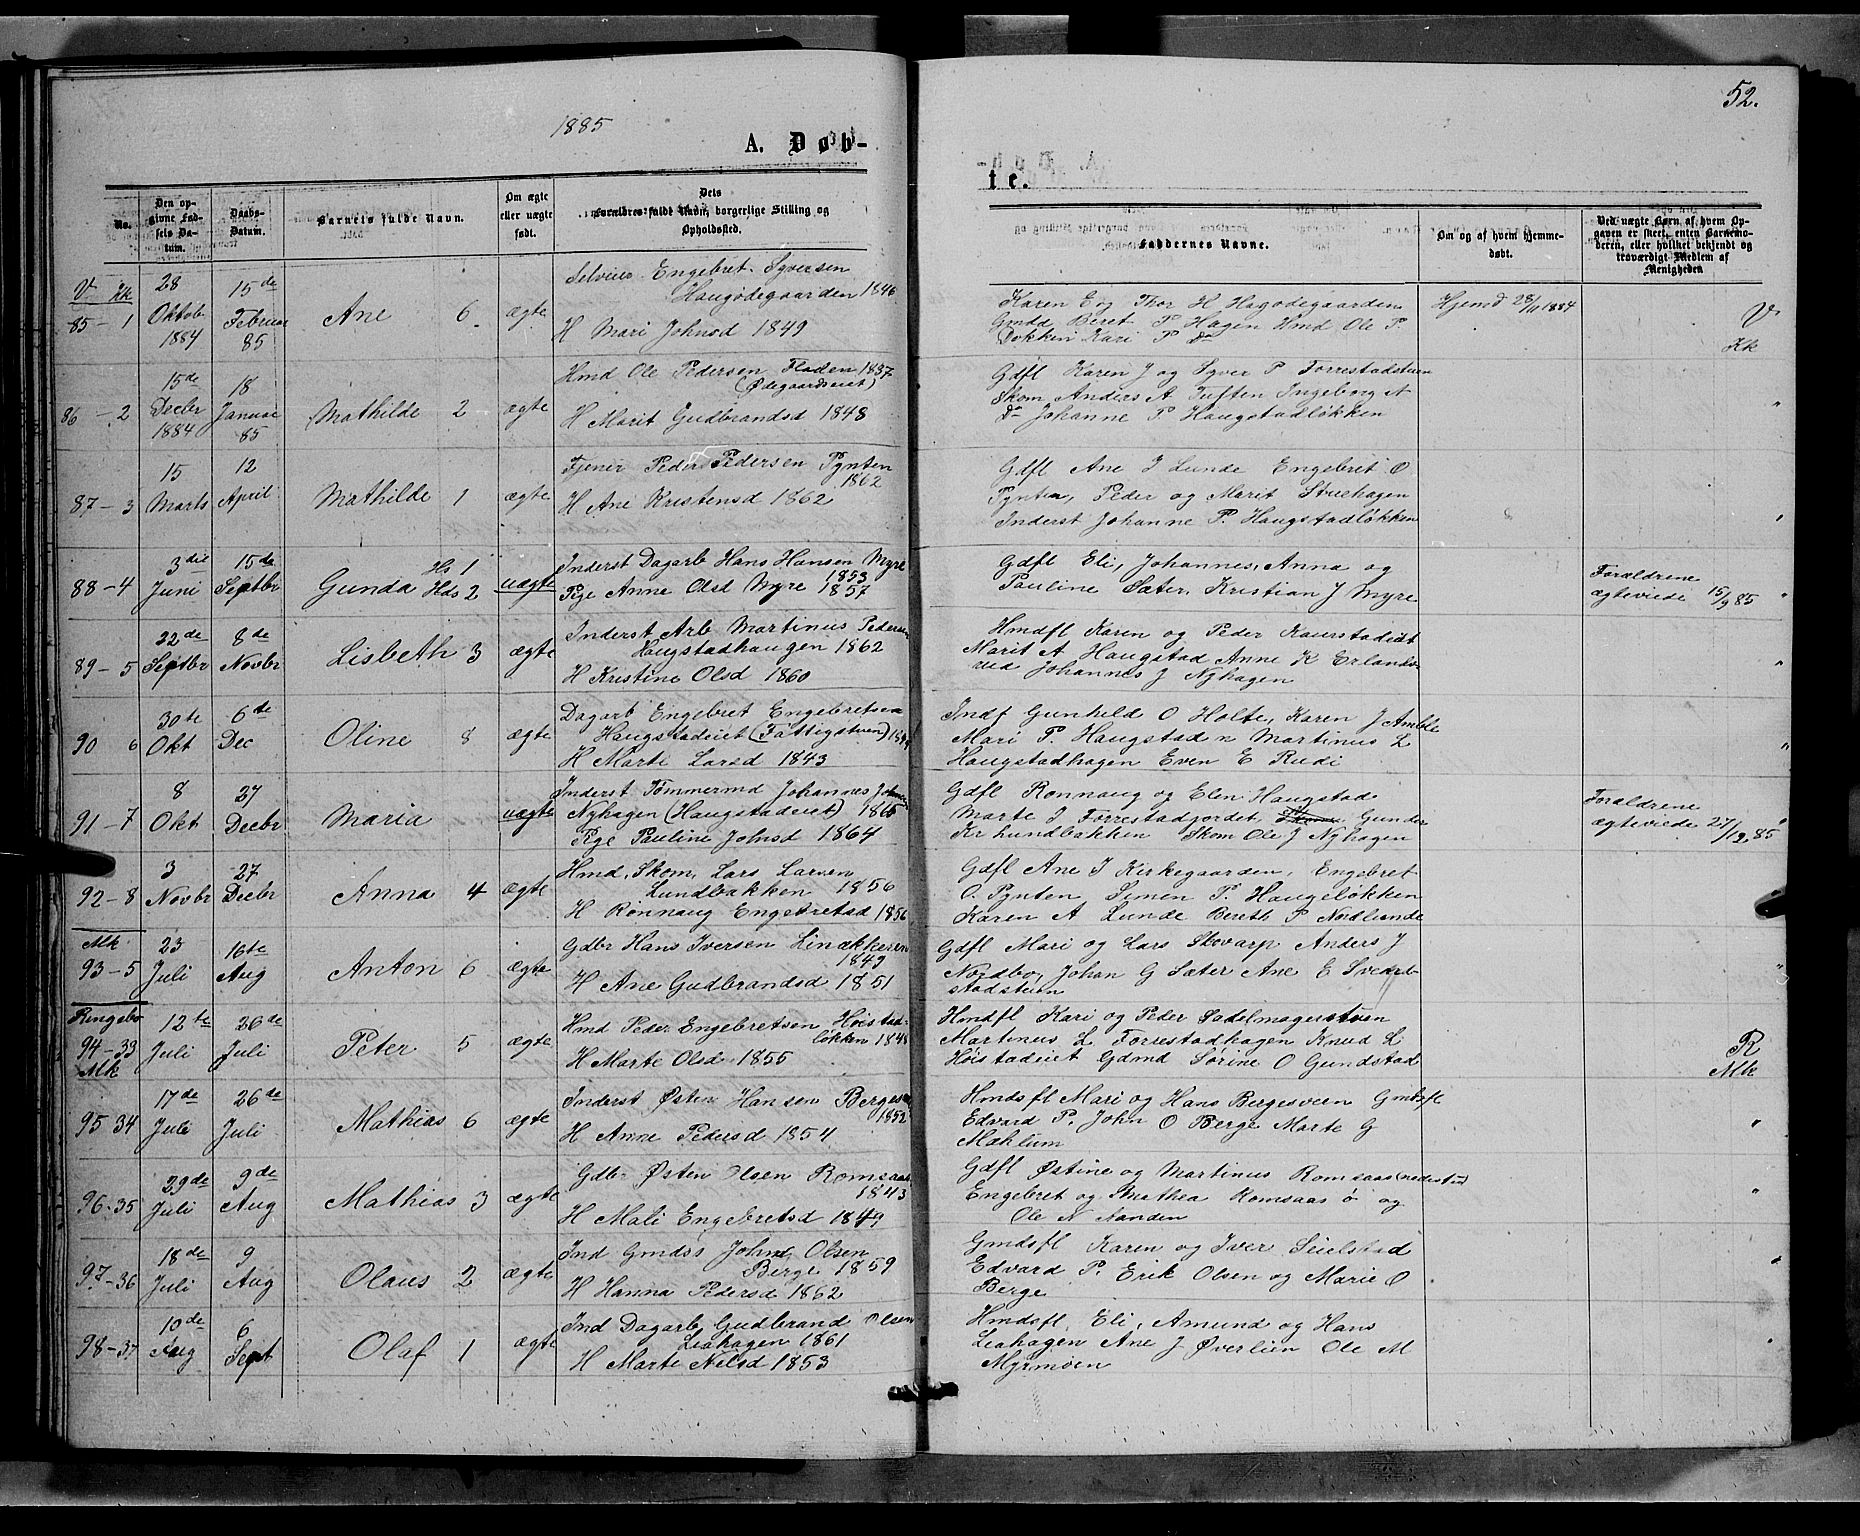 52.
1885
A. Døb-
te.
No.
Den op-
givne Fød-
sels Da-
tum.
Daabs-
Datum.
Barnets fulde Navn.
Om ægte
eller uægte
født.
Dets
Forældres fulde Navn, borgerlige Stilling og
Opholdssted.
Faddernes Navne.
Om og af hvem Hjemme-
døbt.
Ved uægte Børn af hvem Op-
gaven er skeet, enten Barnemo-
deren, eller hvilket bekjendt og
troværdigt Medlem af
Menigheden
V Kk
85-1
28
Oktob
1884
15de
Februar
85
Ane 6
ægte
Selveier Engebret Syversen
Haugødegaarden 1846
H Mari Johnsd 1849
Karen E og Thor H Hagødegaarden
Gmdd Beret P Hagen Hmd Ole P.
Dokken Kari P Do
Hjemd 28/11 1884
V
Kk
86-2
15de
Decbr
1884
18
Januar
85
Mathilde 2
ægte
Hmd Ole Pedersen Fladen 1837
(Ødegaardseiet)
H Marit Gudbrandsd 1848
Gdfl Karen J og Syver P Forrestadstuen
Skom Anders A Tuften Ingeborg A
Do Johanne P Haugstadløkken
"
87-3
15
Marts
12
April
Mathilde 1
ægte
Tjener Peder Pedersen Pynten
1862
H Ane Kristensd 1862
Gdfl Ane I Lunde Engebret O
Pynten, Peder og Marit Struehagen
Inderst Johanne P. Haugstadløkken
"
88-4
3die
Juni
15de
Septbr
Gunda Hs 1
Hds 2
uægte
Inderst Dagarb Hans Hansen Myre
1853
Pige Anne Olsd Myre 1857
Gdfl Eli, Johannes, Anna og
Pauline Sæter, Kristian J Myre
Forældrene
ægteviede 15/9 85
"
89-5
22de
Septbr
8de
Novbr
Lisbeth 3
ægte
Inderst Arb Martinus Pedersen
Haugstadhaugen 1862
H Kristine Olsd 1860
Hmdfl Karen og Peder Kaurstadeiet
Marit A Haugstad Anne K Erlands-
rud Johannes J Nyhagen
"
90 6
30te
Okt
6te
Dec
Oline 8
ægte
Dagarb Engebret Engebretsen
Haugstadeiet (Fattigstuen)
H Marte Larsd 1843
Indf Gunhild O Holte, Karen J Amble
Mari P. Haugstad n Martinus L
Haugstadhagen Even E Rudi
"
91-7
8
Okt
27
Decbr
Maria
uægte
Inderst Tømmermd Johannes Johnsen
Nyhagen (Haugstadeiet) 1865
Pige Pauline Johnsd 1864
Gdfl Ronnaug og Elen Haugstad
Marte I Forrestadjordet, Gunder
Kr Lundbakken Skom Ole J Nyhagen
Forældrene
ægteviede 27/12 85
"
92-8
3
Novbr
27
Decbr
Anna 4
ægte
Hmd, Skom, Lars Larsen
Lundbakken 1856
H Rønnaug Engebretsd 1856
Gdfl Ane I Kirkegaarden, Engebret
O. Pynten Simen P. Haugeløkken
Karen A Lunde Bereth P Nodlunde
Mk
93-5
23
Juli
16te
Aug
Anton 6
ægte
Gdbr Hans Iversen Linækkeren
1849
H Ane Gudbrandsd 1851
Gdfl Mari og Lars Skovarp Anders J
Nordbo, Johan G Sæter Ane E Svedb-
stadstuen
"
Ringebo
94-33
Mk
12te
Juli
26de
Juli
Peter 5
ægte
Hmd Peder Engebretsen Høistad-
løkken 1848
H Marte Olsd 1855
Hmdfl Kari og Peder Sadelmagerstuen
Martinus L Forrestadhagen Knud L
Høistadeiet Gdmd Sørine O Gundstad
R
Mk
95-34
17de
Juli
26de
Juli
Mathias 6
ægte
Inderst Østen Hansen Bergesveen
1852
H Anne Pedersd 1854
Hmdsfl Mari og Hans Bergesveen Gmdsfl
Edvard P. John O Berge Marte G
Mæhlum
"
96-35
29de
Juli
9de
Aug
Mathias 3
ægte
Gdbr Østen Olsen Romsaas
1843
H Mali Engebretsd 1849
Gdfl Østine og Martinus Romsaas (nedistu)
Engebret og Mathea Romsaas ø og
Ole N Aanden
"
97-36
18de
Juli
9
Aug
Olaus 2
ægte
Ind Gmdss John Olsen
Berge 1859
H Hanna Pedersd 1862
Gmdsfl Karen og Iver Seielstad
Edvard P. Erik Olsen og Marie O
Berge
"
98-37
10de
Aug
6
Sept
Olaf 1
ægte
Ind Dagarb Gudbrand Olsen
Leahagen 1861
H Marte Nelsd 1853
Hmdsfl, Eli, Amund og Hans
Leahagen Ane J Øverlien Ole M
Myrmoen
"